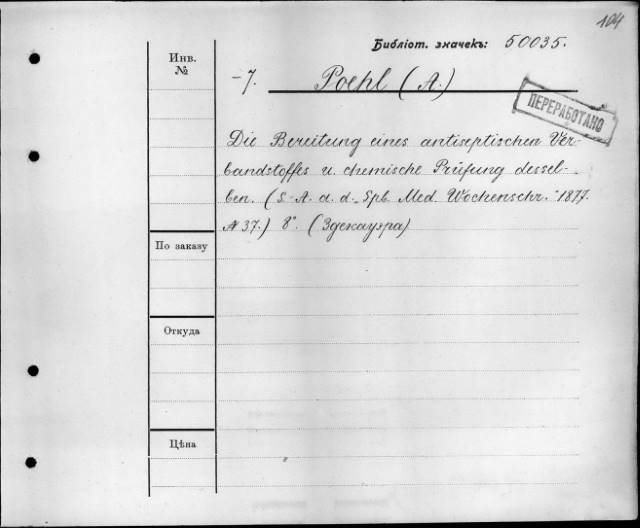 104
Библіот. значекъ: 50035.
Инв.
№
-7. Poehl (A.)
ПЕРЕРАБОТАНО
Die Bereitung eines antiseptischen Ver-
bandstoffes u. chemische Prüfung dessel-
ben. (S.-A. a. d. Spb. Med. Wochenschr. 1877.
№ 37.) 8°. (Здекауэра)
По заказу
Откуда
Цѣна